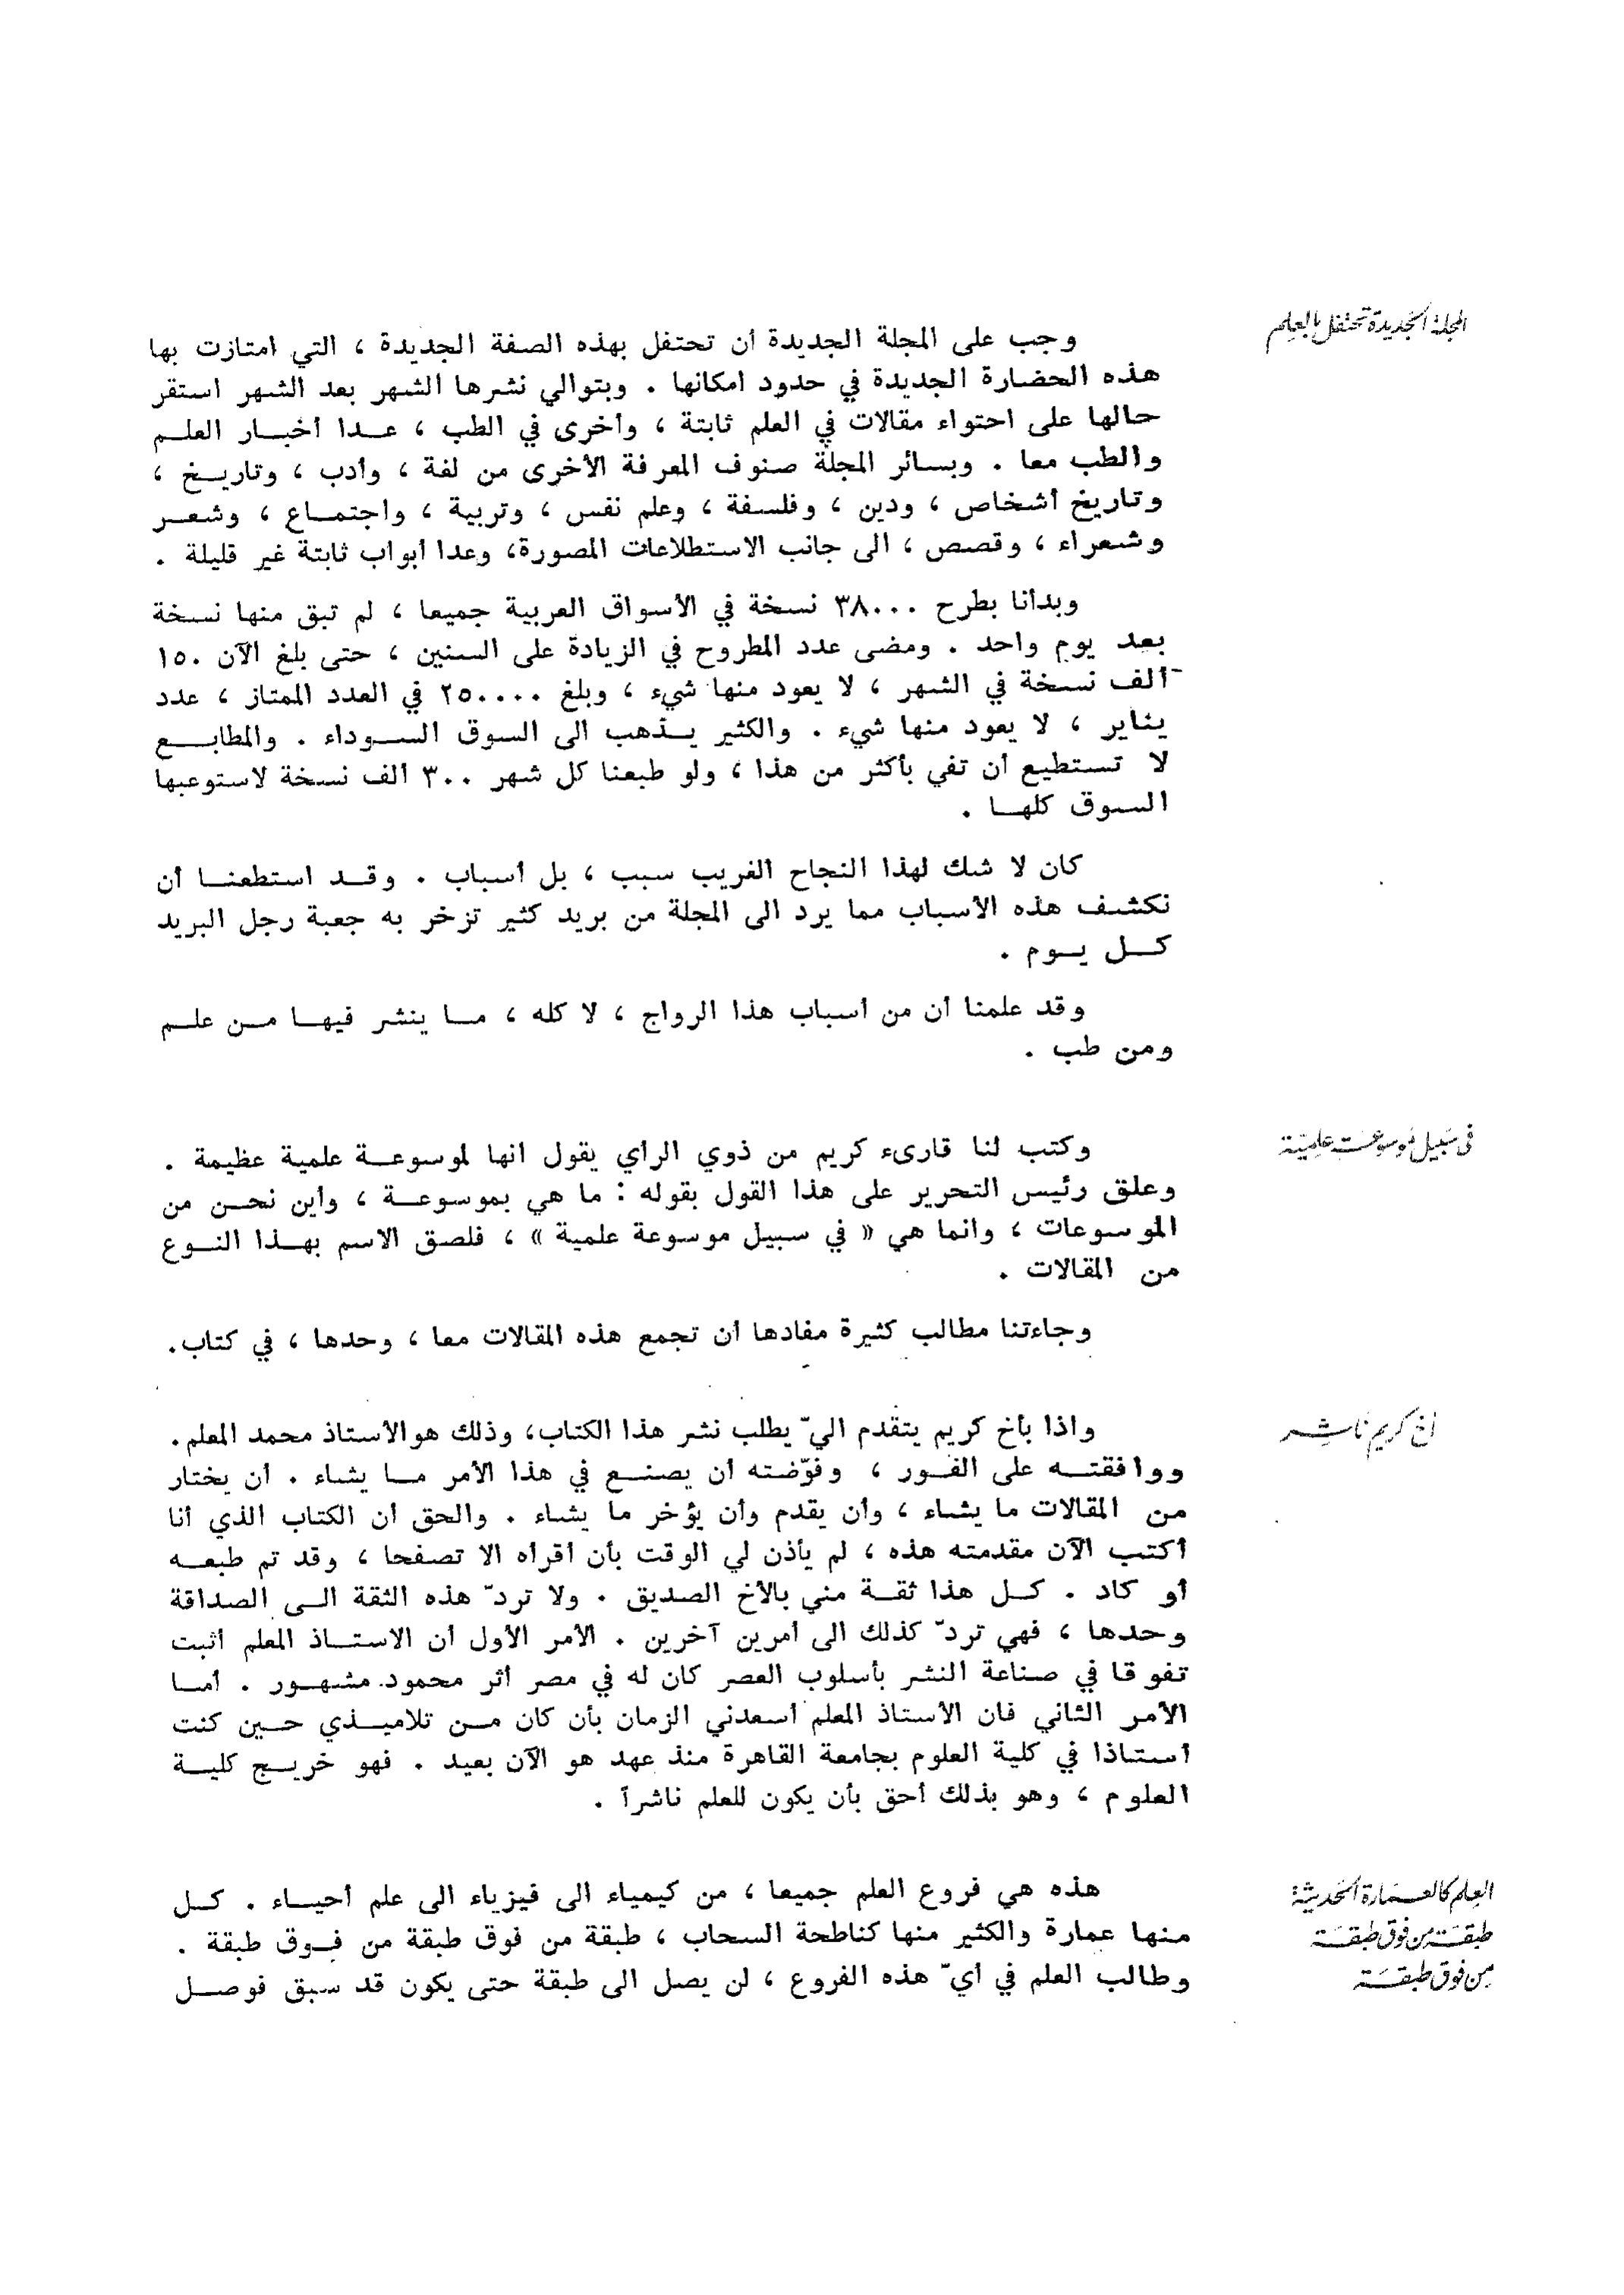 المجلة الجديدة تحتفل بالعلم
وجب على المجلة الجديدة أن تحتفل بهذه الصفة الجديدة ، التي امتازت بها
هذه الحضارة الجديدة في حدود امكانها . وبتوالي نشرها الشهر بعد الشهر استقر
حالها على احتواء مقالات في العلم ثابتة ، وأخرى في الطب ، عدا أخبار العلم
والطب معا . وبسائر المجلة صنوف المعرفة الأخرى من لغة ، وأدب ، وتاريخ ،
وتاريخ أشخاص ، ودين ، وفلسفة ، وعلم نفس ، وتربية ، واجتماع ، وشعر
وشعراء ، وقصص ، الى جانب الاستطلاعات المصورة، وعدا أبواب ثابتة غير قليلة .
وبدأنا بطرح ٣٨٠٠٠ نسخة في الأسواق العربية جميعا ، لم تبق منها نسخة
بعد يوم واحد . ومضى عدد المطروح في الزيادة على السنين ، حتى بلغ الآن ١٥٠
ألف نسخة في الشهر ، لا يعود منها شيء ، وبلغ ٢٥٠٠٠٠ في العدد الممتاز ، عدد
يناير ، لا يعود منها شيء . والكثير يذهب الى السوق السوداء . والمطابع
لا تستطيع أن تفي بأكثر من هذا ، ولو طبعنا كل شهر ٣٠٠ ألف نسخة لاستوعبها
السوق كلها .
كان لا شك لهذا النجاح الغريب سبب ، بل أسباب . وقد استطعنا أن
نكشف هذه الأسباب مما يرد الى المجلة من بريد كثير تزخر به جعبة رجل البريد
كل يوم .
وقد علمنا أن من أسباب هذا الرواج ، لا كله ، ما ينشر فيها من علم
ومن طب .
في سبيل موسوعة علمية
وكتب لنا قارىء كريم من ذوي الرأي يقول انها لموسوعة علمية عظيمة .
وعلق رئيس التحرير على هذا القول بقوله : ما هي بموسوعة ، وأين نحن من
الموسوعات ، وانما هي « في سبيل موسوعة علمية » ، فلصق الاسم بهذا النوع
من المقالات .
وجاءتنا مطالب كثيرة مفادها أن تجمع هذه المقالات معا ، وحدها ، في كتاب.
أخ كريم ناشر
واذا بأخ كريم يتقدم اليّ يطلب نشر هذا الكتاب، وذلك هو الاستاذ محمد المعلم.
ووافقته على الفور ، وفوّضته أن يصنع في هذا الأمر ما يشاء . أن يختار
من المقالات ما يشاء ، وأن يقدم وأن يؤخر ما يشاء . والحق أن الكتاب الذي أنا
أكتب الآن مقدمته هذه ، لم يأذن لي الوقت بأن أقرأه الا تصفحا ، وقد تم طبعه
أو كاد . كل هذا ثقة مني بالأخ الصديق . ولا تردّ هذه الثقة الى الصداقة
وحدها ، فهي تردّ كذلك الى أمرين آخرين . الأمر الأول أن الاستاذ المعلم أثبت
تفوقا في صناعة النشر بأسلوب العصر كان له في مصر أثر محمود مشهور . أما
الأمر الثاني فان الأستاذ المعلم أسعدني الزمان بأن كان من تلاميذي حين كنت
أستاذا في كلية العلوم بجامعة القاهرة منذ عهد هو الآن بعيد . فهو خريج كلية
العلوم ، وهو بذلك أحق بأن يكون للعلم ناشرآ .
العلم كالعمارة الحديثة
طبقة من فوق طبقة
من فوق طبقة
هذه هي فروع العلم جميعا ، من كيمياء الى فيزياء الى علم أحياء . كل
منها عمارة والكثير منها كناطحة السحاب ، طبقة من فوق طبقة من فوق طبقة .
وطالب العلم في أيّ هذه الفروع ، لن يصل الى طبقة حتى يكون قد سبق فوصل